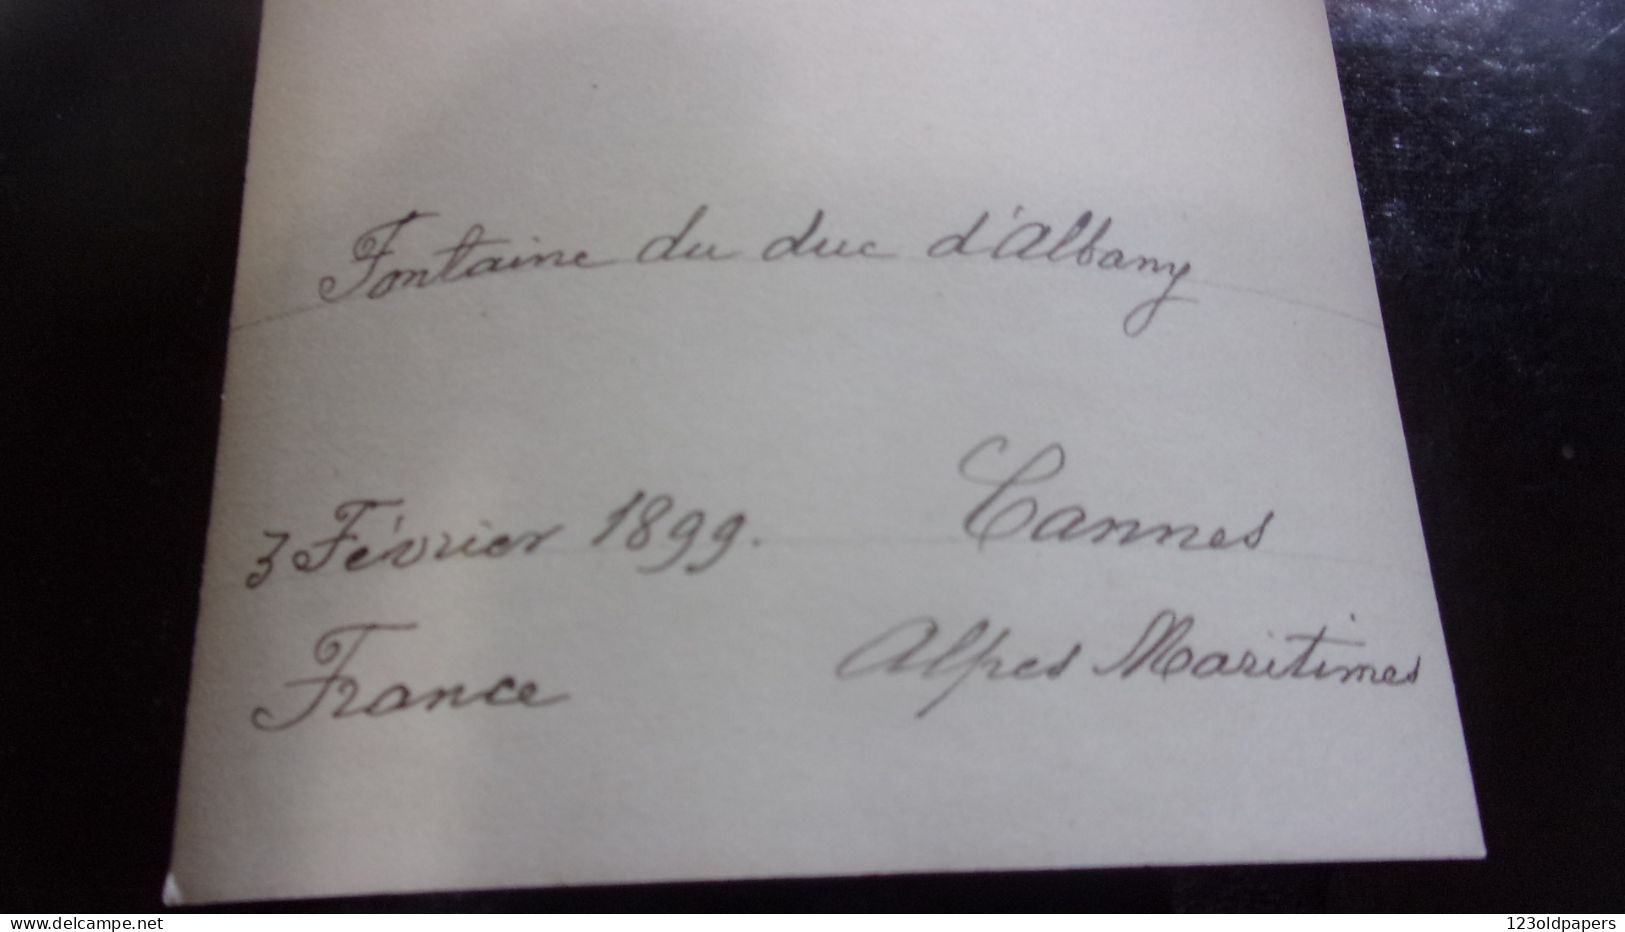 Fontaine du duc d'Albany
3 Février 1899. Cannes
France Alpes Maritimes
www.delcampe.net 123oldpapers